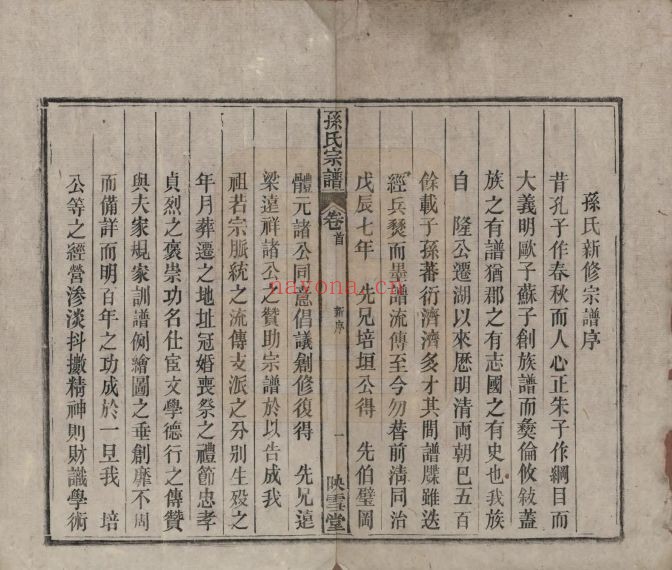 孫氏新修宗譜序
昔孔子作春秋而人心正朱子作綱目而
大義明歐子蘇子創族譜而彝倫攸敍蓋
族之有譜猶郡之有志國之有史也我族
自 隆公遷湖以來歷明清両朝巳五百
餘載子孫蕃衍濟濟多才其間譜牒雖迭
經兵燹而墨譜流傳至今勿替前清同治
戊辰七年 先兄培垣公得 先伯璧岡
孫氏宗譜 卷首 新序 一 映雪堂
體元諸公同意倡議創修復得 先兄遠
梁遠祥諸公之贊助宗譜於以告成我
祖若宗脈統之流傳支派之分別生歿之
年月葬遷之地址冠婚喪祭之禮節忠孝
貞烈之褒崇功名仕宦文學德行之傳贊
與夫家規家訓譜例繪圖之垂創靡不周
而備詳而明百年之功成於一旦我 培
公等之經營滲淡抖擻精神則財識學術
nayona.cn